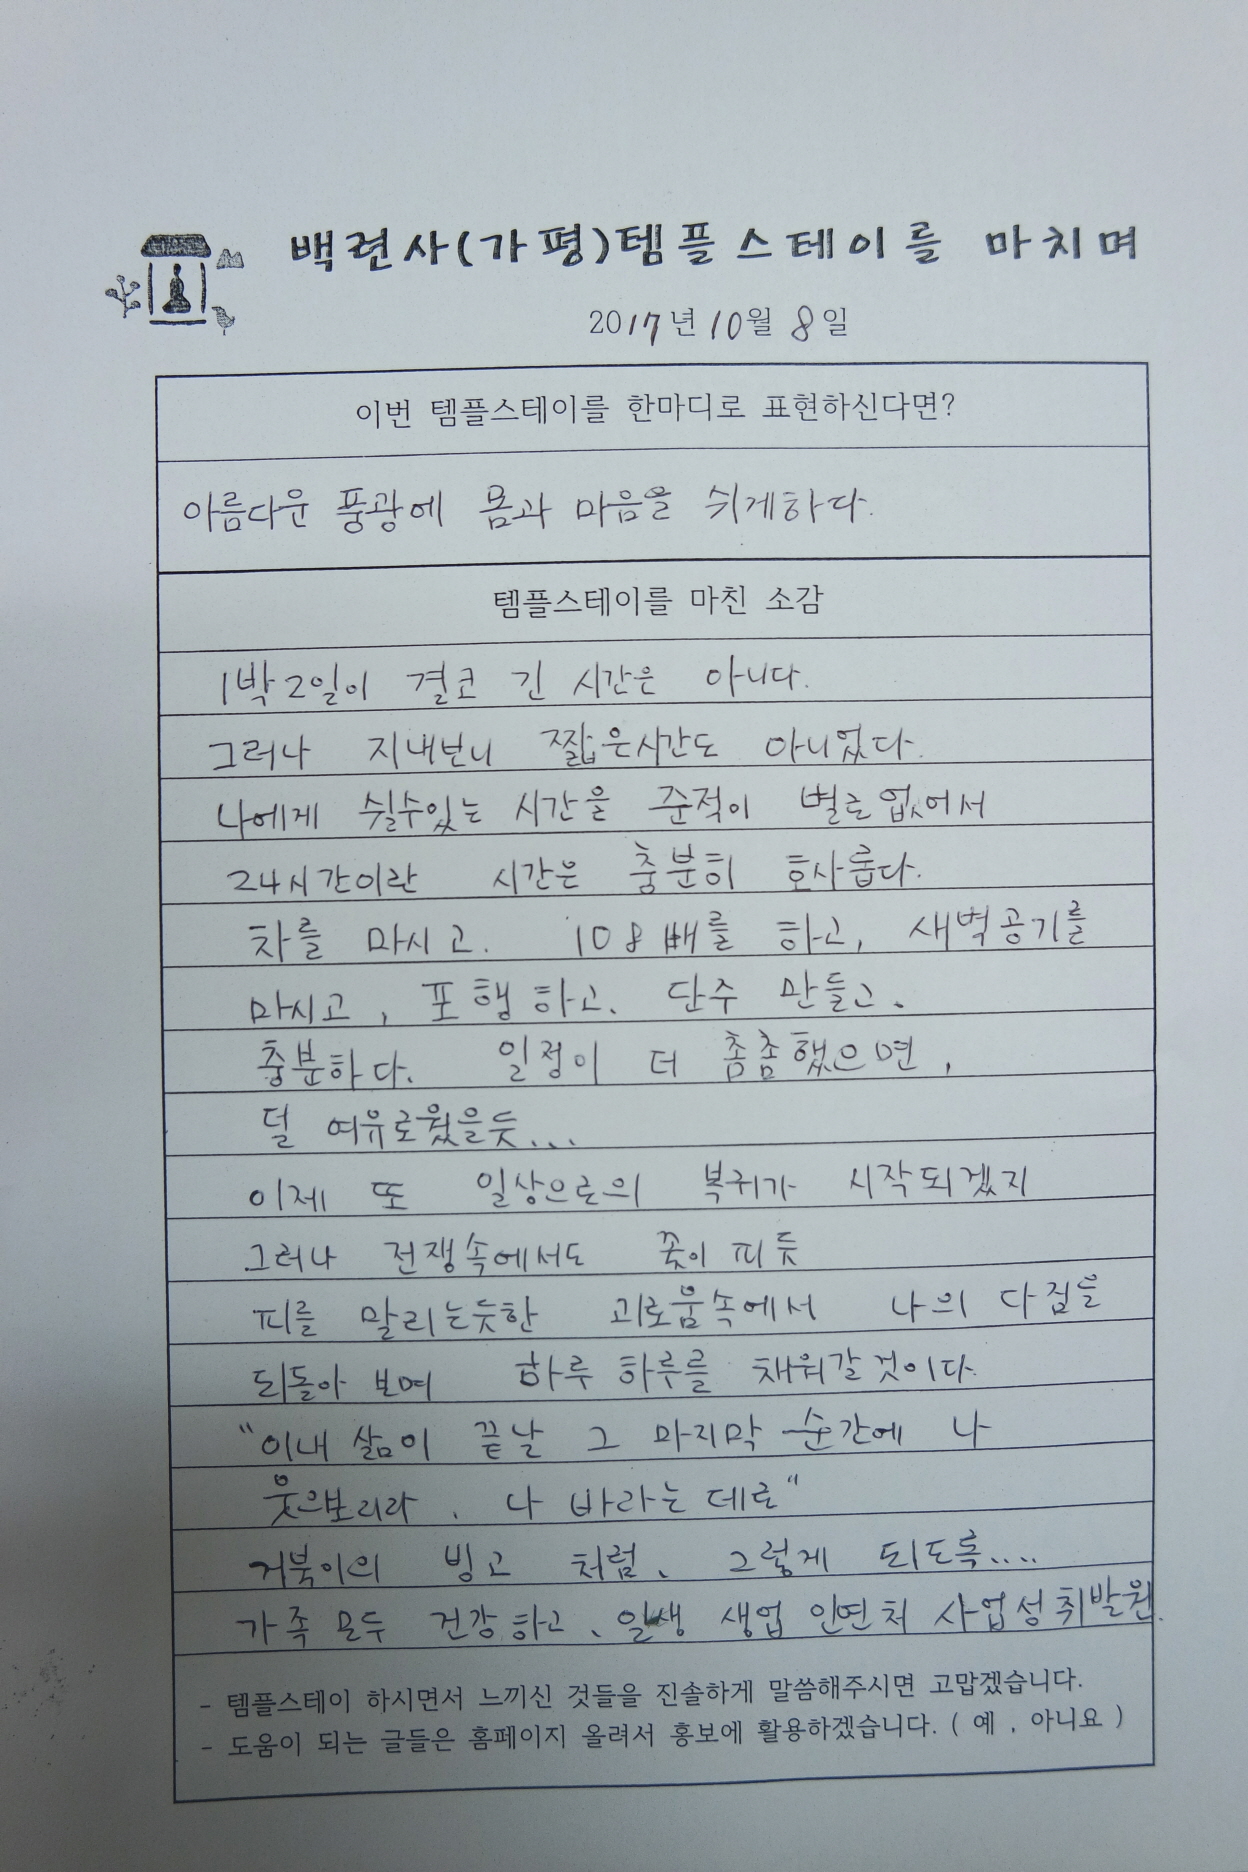 백련사(가평)템플스테이를 마치며
2017년 10월 8일
이번 템플스테이를 한마디로 표현하신다면?
아름다운 풍광에 몸과 마음을 쉬게하다.
템플스테이를 마친 소감
1박2일이 결코 긴 시간은 아니다.
그러나 지내보니 짧은시간도 아니었다.
나에게 쉴수있는 시간을 준적이 별로 없어서
24시간이란 시간은 충분히 호사롭다.
차를 마시고. 108배를 하고, 새벽공기를
마시고, 포행하고. 단주 만들고.
충분하다. 일정이 더 촘촘했으면,
덜 여유로웠을듯...
이제 또 일상으로의 복귀가 시작되겠지
그러나 전쟁속에서도 꽃이 피듯
피를 말리는듯한 괴로움속에서 나의 다짐을
되돌아 보며 하루 하루를 채워갈것이다.
"이내 삶이 끝날 그 마지막 순간에 나
웃으보리라. 나 바라는 데로"
거북이의 빙고 처럼. 그렇게 되도록....
가족 모두 건강하고. 일생 생업 인연처 사업성취발원.
- 템플스테이 하시면서 느끼신 것들을 진솔하게 말씀해주시면 고맙겠습니다.
- 도움이 되는 글들은 홈페이지 올려서 홍보에 활용하겠습니다. ( 예 , 아니요 )